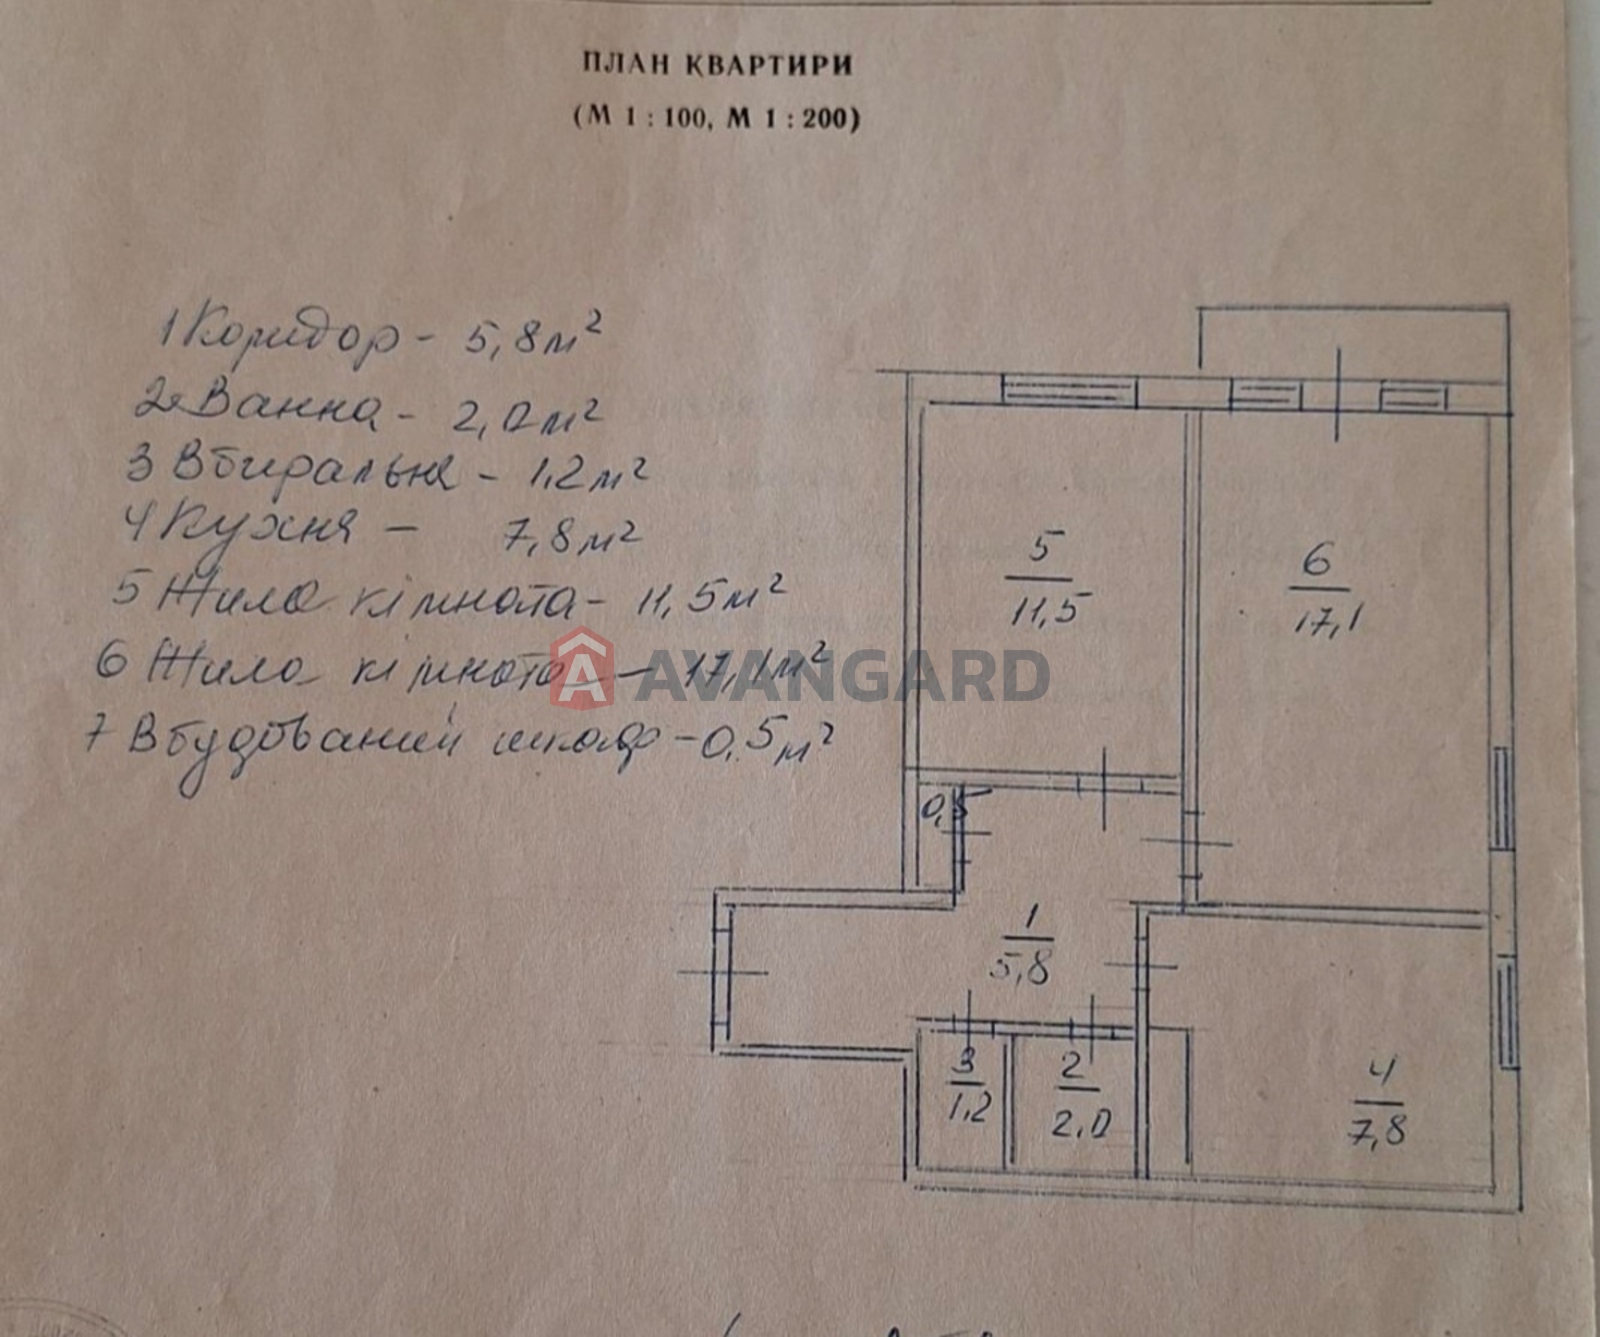 ПЛАН КВАРТИРИ
(М 1 : 100, М 1 : 200)
1 Коридор - 5,8 м²
2 Ванна - 2,0 м²
3 Вбиральня - 1,2 м²
4 Кухня - 7,8 м²
5 Жила кімната - 11,5 м²
6 Жила кімната - 17,1 м²
7 Вбудований шкаф - 0,5 м²
AVANGARD
5
11,5
6
17,1
0,5
1
5,8
3
1,2
2
2,0
4
7,8